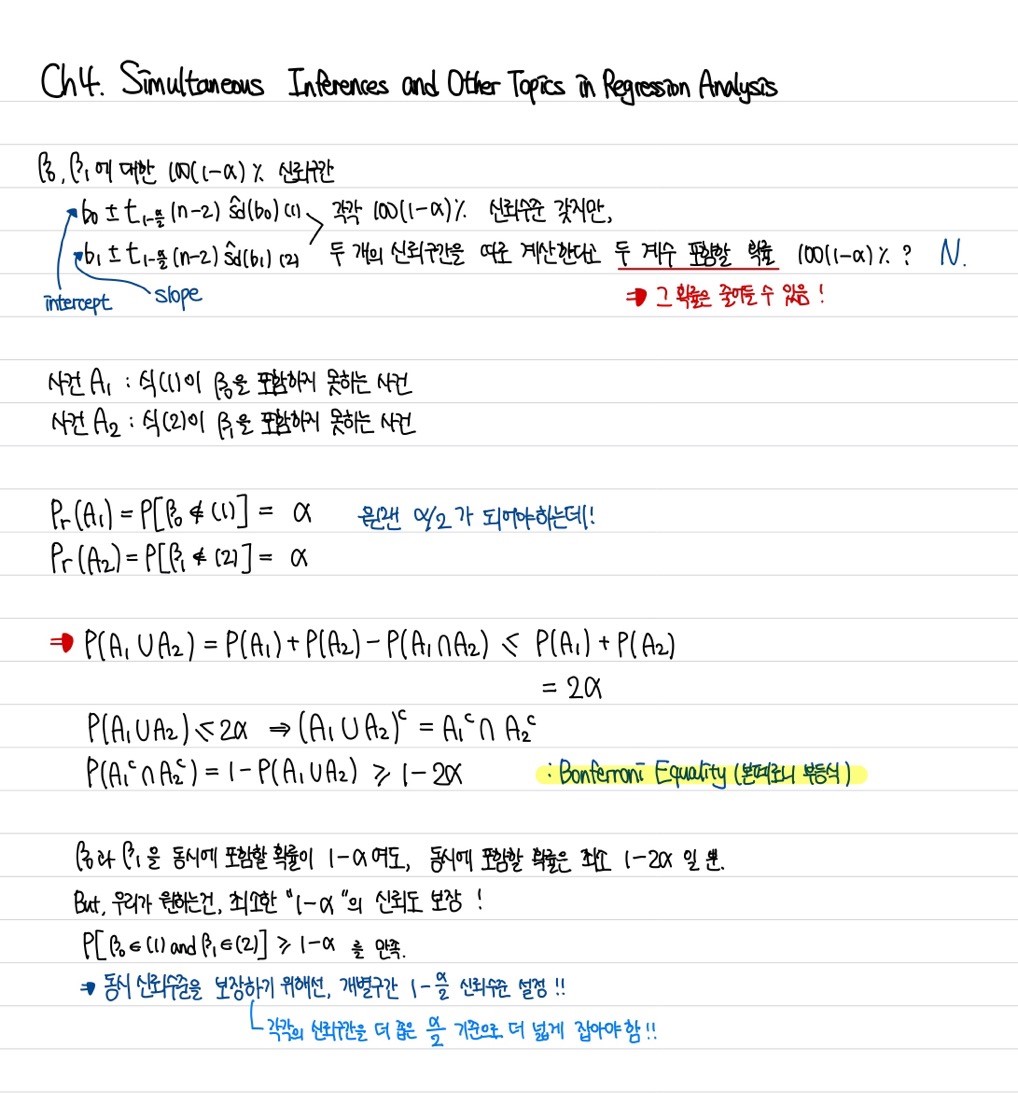 Ch4. Simultaneous Inferences and Other Topics in Regression Analysis
β₀, β₁에 대한 100(1-α)% 신뢰구간
b₀ ± t₁₋α/₂ (n-2) ŝd(b₀) (1) 각각 100(1-α)% 신뢰수준 갖지만,
b₁ ± t₁₋α/₂ (n-2) ŝd(b₁) (2) 두 개의 신뢰구간을 따로 계산한다고 두 계수 포함할 확률 100(1-α)% ? N.
intercept slope
⇒ 그 확률은 줄어들 수 있음 !
사건 A₁ : 식(1)이 β₀을 포함하지 못하는 사건
사건 A₂ : 식(2)이 β₁을 포함하지 못하는 사건
Pr(A₁) = P[β₀ ∉ (1)] = α 원랜 α/2 가 되어야하는데!
Pr(A₂) = P[β₁ ∉ (2)] = α
⇒ P(A₁ ∪ A₂) = P(A₁) + P(A₂) - P(A₁ ∩ A₂) ≤ P(A₁) + P(A₂)
= 2α
P(A₁ ∪ A₂) ≤ 2α ⇒ (A₁ ∪ A₂)ᶜ = A₁ᶜ ∩ A₂ᶜ
P(A₁ᶜ ∩ A₂ᶜ) = 1 - P(A₁ ∪ A₂) ≥ 1 - 2α : Bonferroni Equality (본페로니 부등식)
β₀와 β₁을 동시에 포함할 확률이 1-α 여도, 동시에 포함할 확률은 최소 1-2α 일 뿐.
But, 우리가 원하는건, 최소한 "1-α"의 신뢰도 보장 !
P[β₀ ∈ (1) and β₁ ∈ (2)] ≥ 1-α 을 만족.
⇒ 동시 신뢰수준을 보장하기 위해선, 개별구간 1-α/2 신뢰수준 설정 !!
각각의 신뢰구간을 더 좁은 α/2 기준으로 더 넓게 잡아야 함 !!